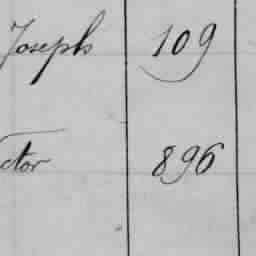 Joseph 109
ctor 896